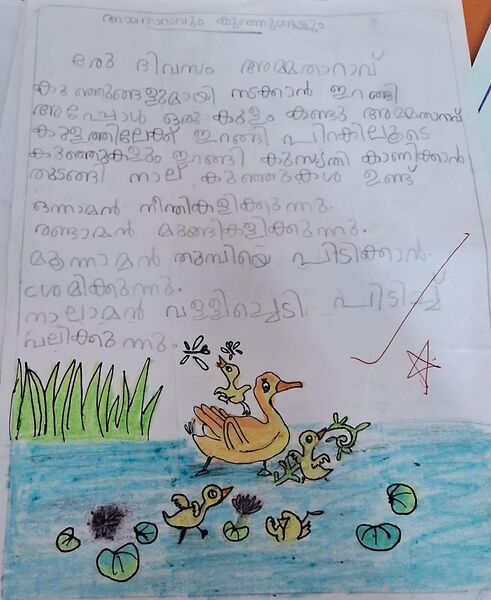 അമ്മതാറാവും കുഞ്ഞുങ്ങളും
ഒരു ദിവസം അമ്മതാറാവ്
കുഞ്ഞുങ്ങളുമായി നടക്കാൻ ഇറങ്ങി
അപ്പോൾ ഒരു കുളം കണ്ടു അമ്മതാറാവ്
കുളത്തിലേക്ക് ഇറങ്ങി പിറകിലൂടെ
കുഞ്ഞുകളും ഇറങ്ങി കുസൃതി കാണിക്കാൻ
തുടങ്ങി നാല് കുഞ്ഞുകൾ ഉണ്ട്
ഒന്നാമൻ നീന്തികളിക്കുന്നു.
രണ്ടാമൻ മുങ്ങികളിക്കുന്നു.
മൂന്നാമൻ തുമ്പിയെ പിടിക്കാൻ.
ശ്രമിക്കുന്നു.
നാലാമൻ വള്ളിച്ചെടി പിടിച്ച്
വലിക്കുന്നു.